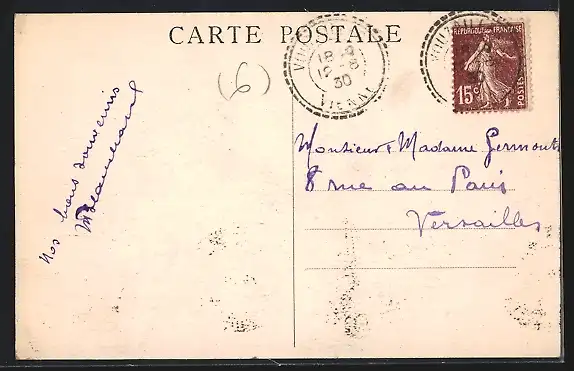 CARTE POSTALE
(6)
18-9
19-8
30
VIENNE
REPUBLIQUE FRANÇAISE
15c
POSTES
Nos bons souvenirs
Monsieur & Madame Germont
8 rue au Pain
Versailles